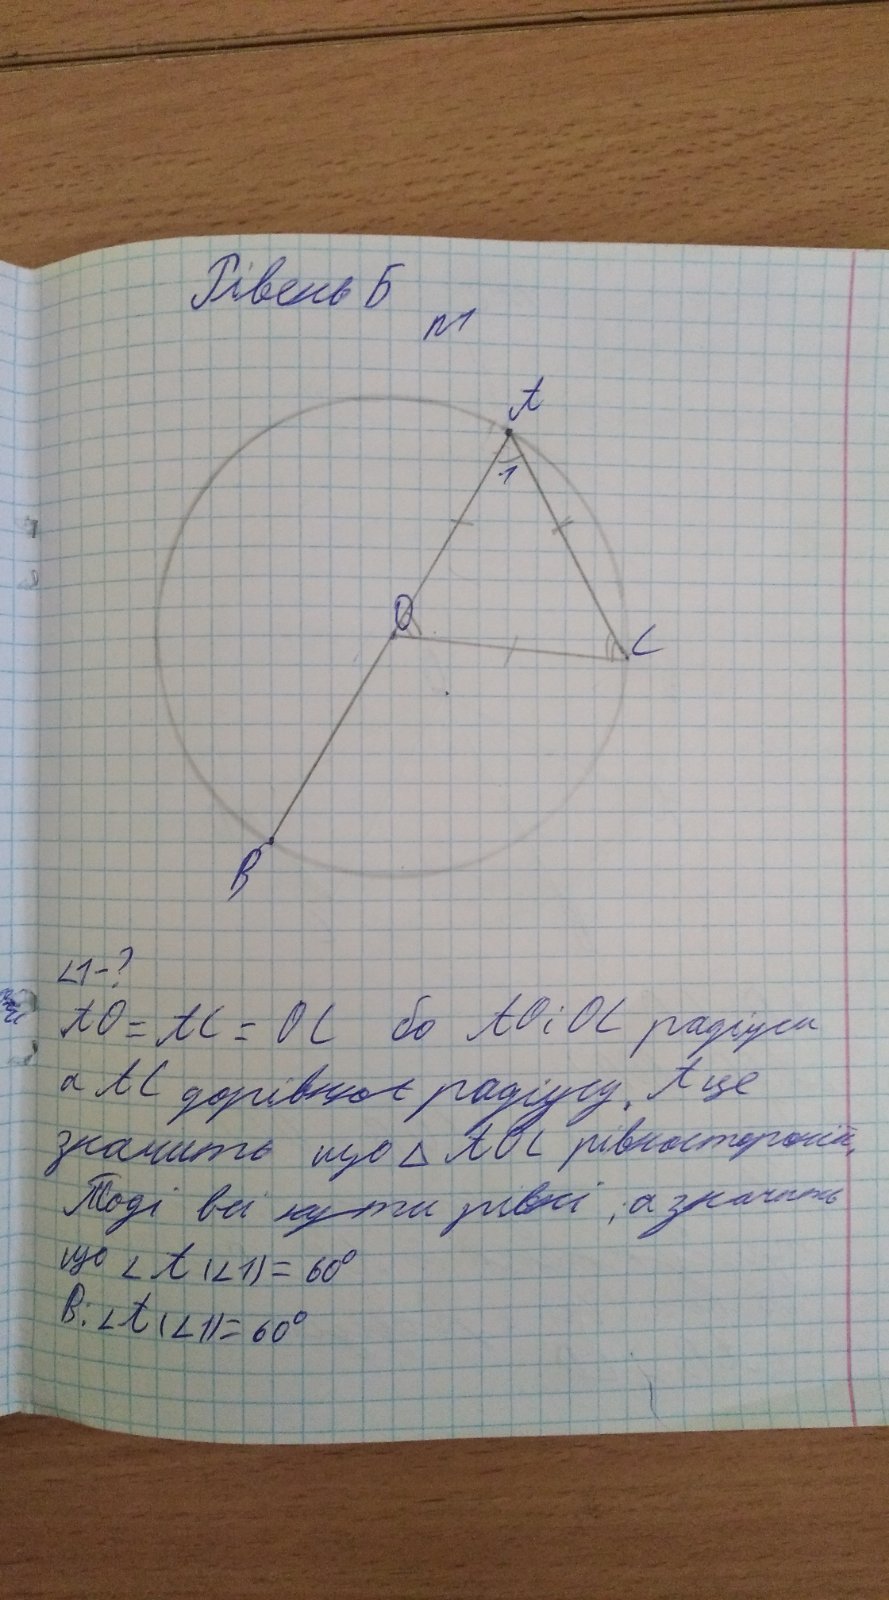 Рівень Б
№1
A
1
O
C
B
∠1-?
AO = AC = OC бо AO і OC радіуси
а AC дорівнює радіусу. А це
значить що △ AOC рівносторонній.
Тоді всі кути рівні, а значить
що ∠A (∠1) = 60°
В: ∠A (∠1) = 60°